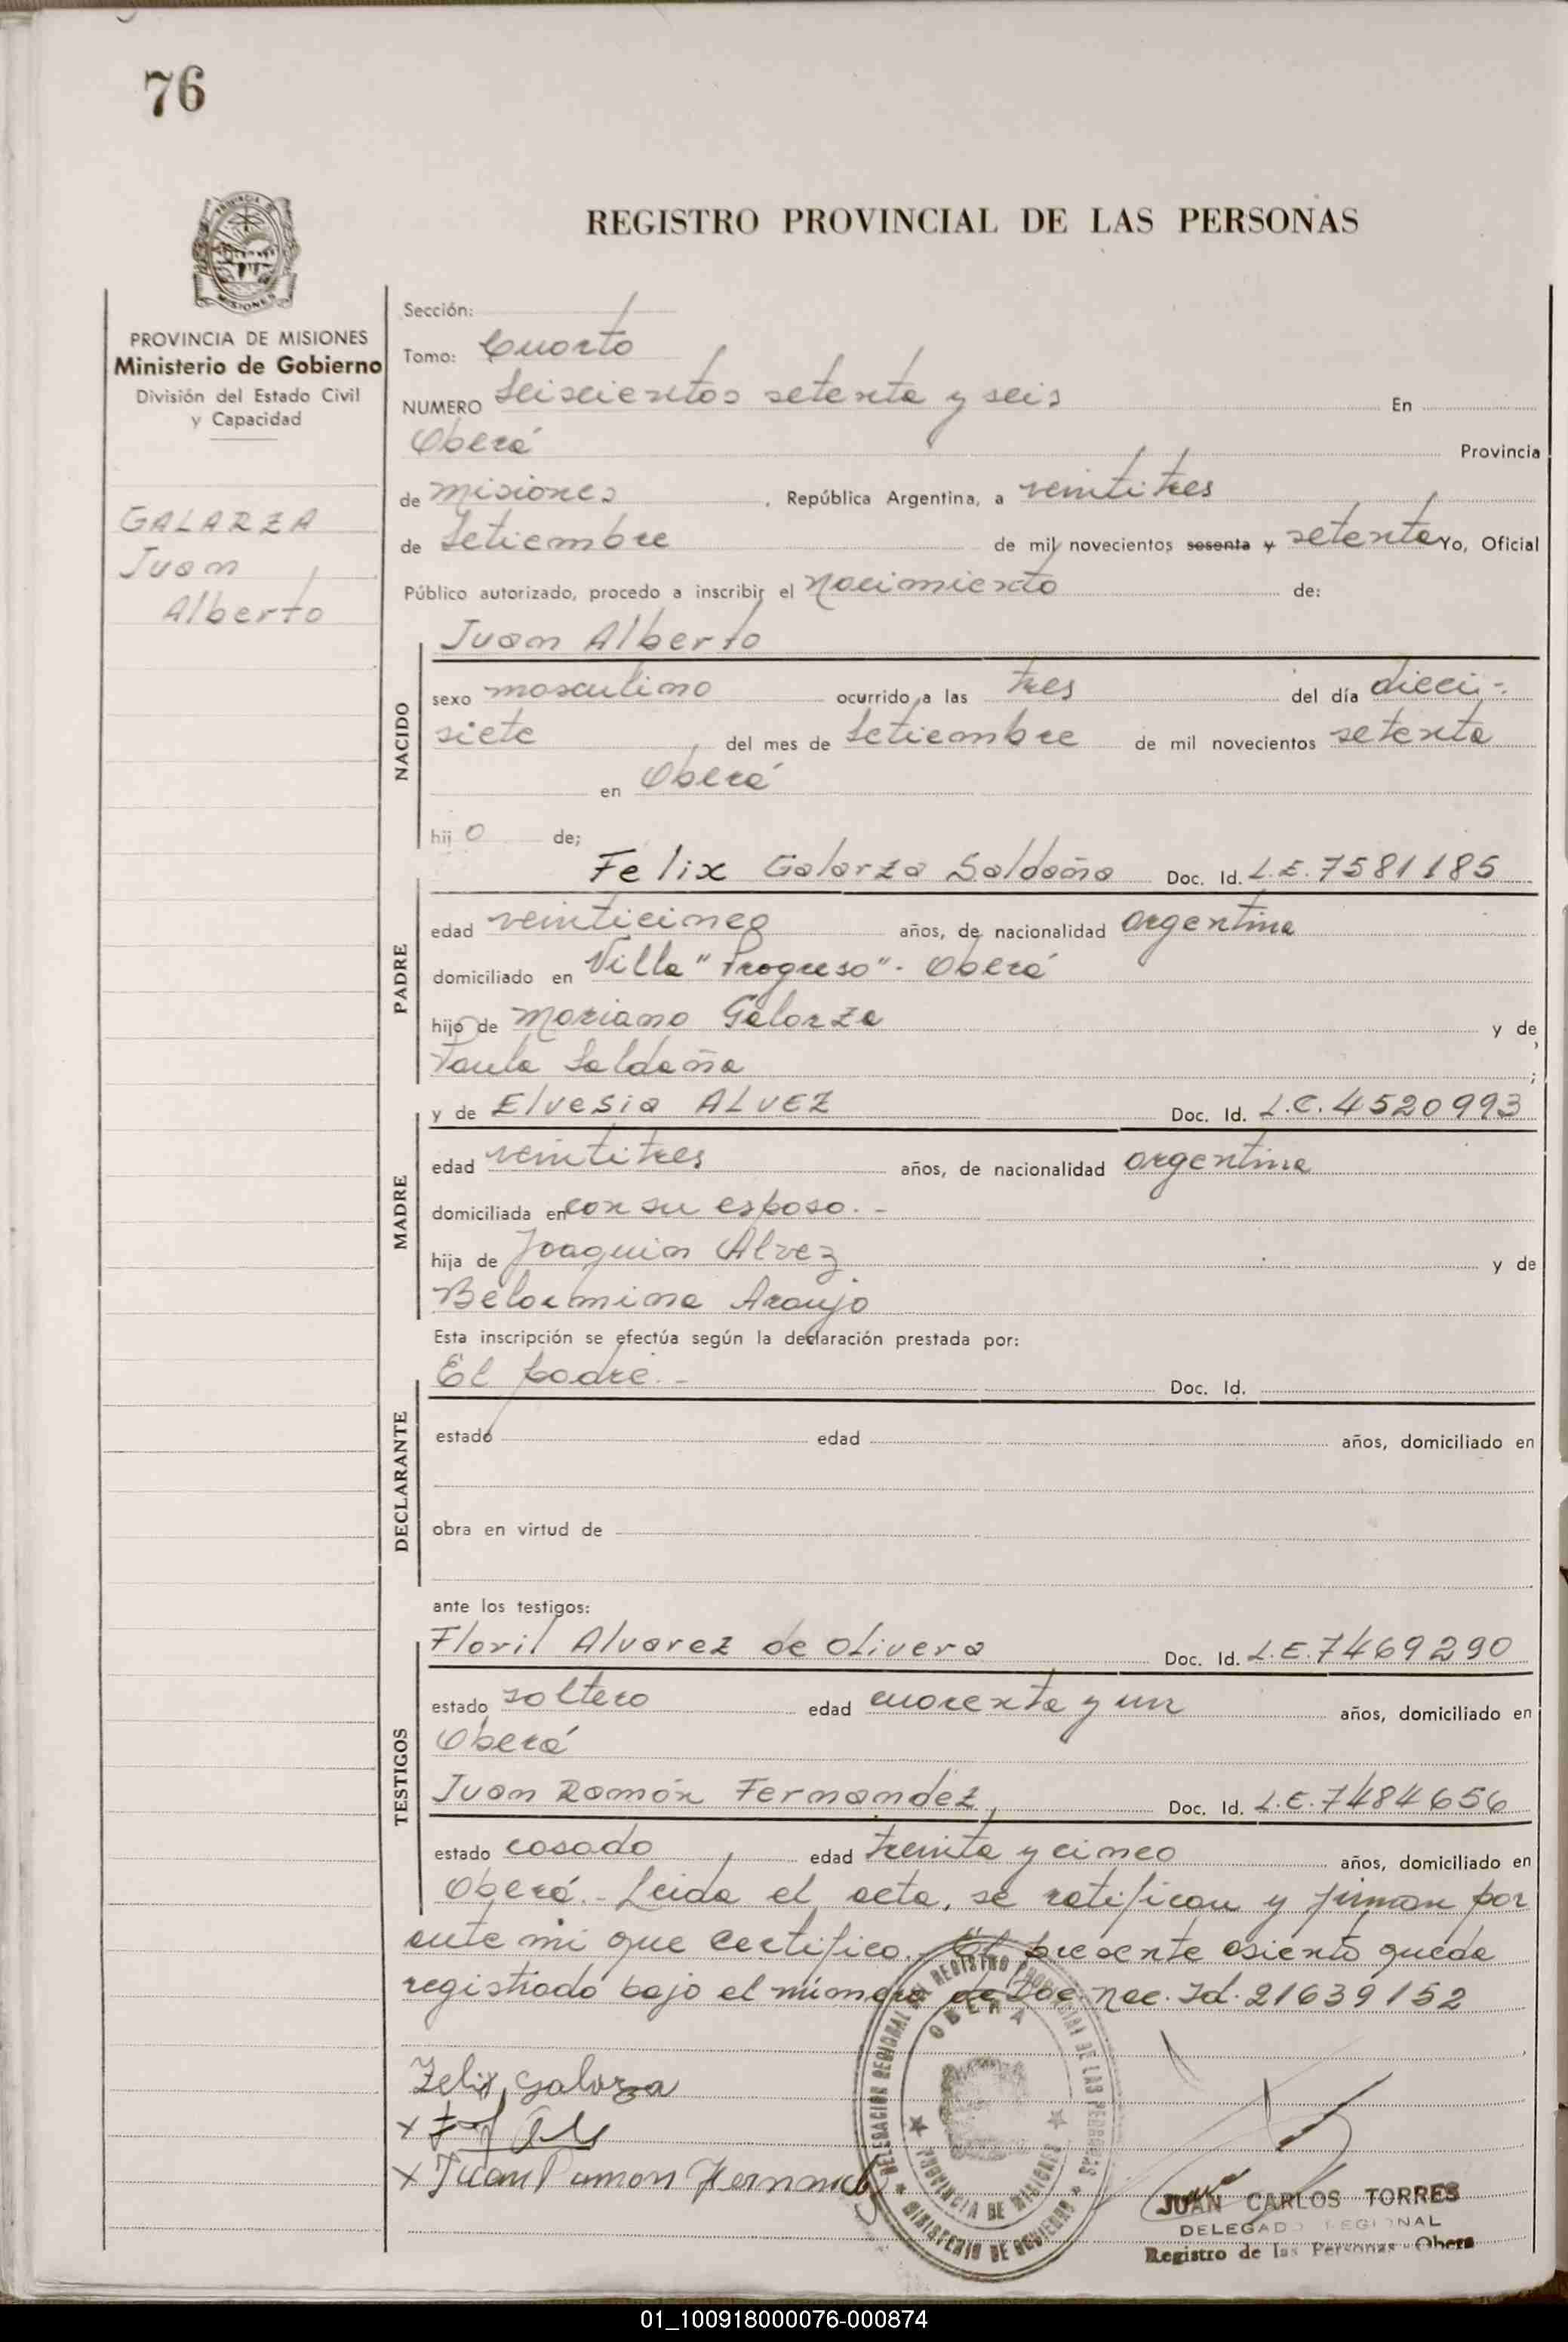 76
REGISTRO PROVINCIAL DE LAS PERSONAS
PROVINCIA DE MISIONES
MISIONES
PROVINCIA DE MISIONES
Ministerio de Gobierno
División del Estado Civil
y Capacidad
GALARZA
Juan
Alberto
Sección:
Tomo: Cuarto
NUMERO Seiscientos setenta y seis En
Oberá Provincia
de Misiones, República Argentina, a veintitres
de Setiembre de mil novecientos sesenta y setenta Yo, Oficial
Público autorizado, procedo a inscribir el Nacimiento de:
Juan Alberto
NACIDO
sexo masculino ocurrido a las tres del día dieci-
siete del mes de Setiembre de mil novecientos setenta
en Oberá
hijo de;
Felix Galarza Saldaña Doc. Id. L.E. 7581185
PADRE
edad veinticinco años, de nacionalidad argentina
domiciliado en Villa "Progreso"- Oberá
hijo de Mariano Galarza y de
Paula Saldaña ;
y de Elvesia ALVEZ Doc. Id. L.C. 4520993
MADRE
edad veintitres años, de nacionalidad argentina
domiciliada en con su esposo.-
hija de Joaquin Alvez y de
Belarmina Araujo
Esta inscripción se efectúa según la declaración prestada por:
El padre.- Doc. Id.
DECLARANTE
estado edad años, domiciliado en
obra en virtud de
ante los testigos:
Floril Alvarez de Olivera Doc. Id. L.E. 7469290
TESTIGOS
estado soltero edad cuarenta y un años, domiciliado en
Oberá
Juan Ramón Fernandez, Doc. Id. L.E. 7484656
estado casado, edad treinta y cinco años, domiciliado en
Oberá.- Leida el acta, se ratifican y firman por
ante mi que certifico.- El presente asiento queda
registrado bajo el número de Doc. Nac. Id. 21639152
Felix Galarza
x
x Juan Ramon
DELEGACION REGIONAL DEL REGISTRO PROVINCIAL DE LAS PERSONAS
OBERA
PROVINCIA DE MISIONES
MINISTERIO DE GOBIERNO
JUAN CARLOS TORRES
DELEGADO REGIONAL
Registro de las Personas - Obera
01_100918000076-000874